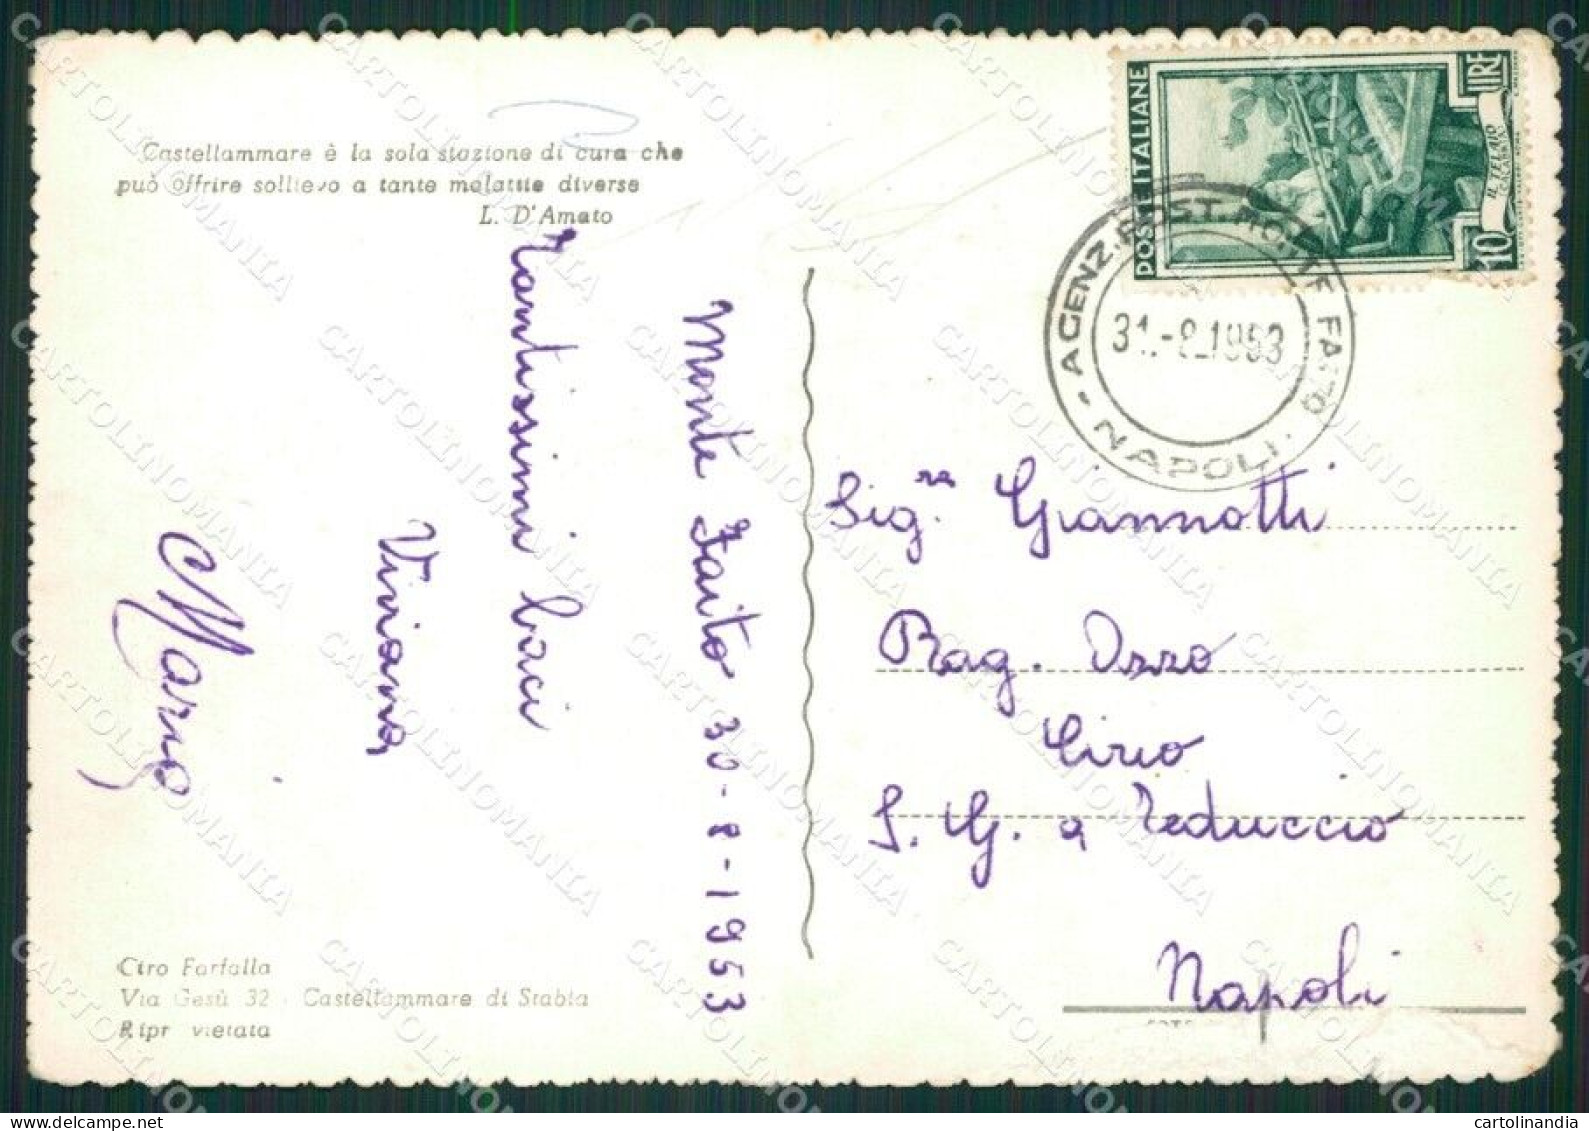 Castellammare è la sola stazione di cura che
può offrire sollievo a tante malattie diverse
L. D'Amato
Monte Faito 30-8-1953
Tantissimi baci
Viviana
Mario
Ciro Farfalla
Via Gesù 32 - Castellammare di Stabia
Ripr vietata
POSTE ITALIANE
LIRE
10
IL TELAIO
CALABRIA
AGENZ. POST. MONTE FAITO
31.-8.1953
- NAPOLI.
Sig.ra Giannotti
Rag. Ozzo
Ciro
S. G. a Teduccio
Napoli
CARTOLINOMANIA
cartolinandia